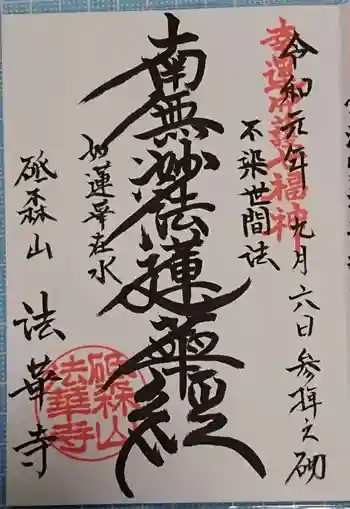 令和元年九月六日参拝之砌
幸運
福神
不染世間法
南無妙法蓮華経
如蓮華在水
砥森山
法華寺
砥森山
法華寺